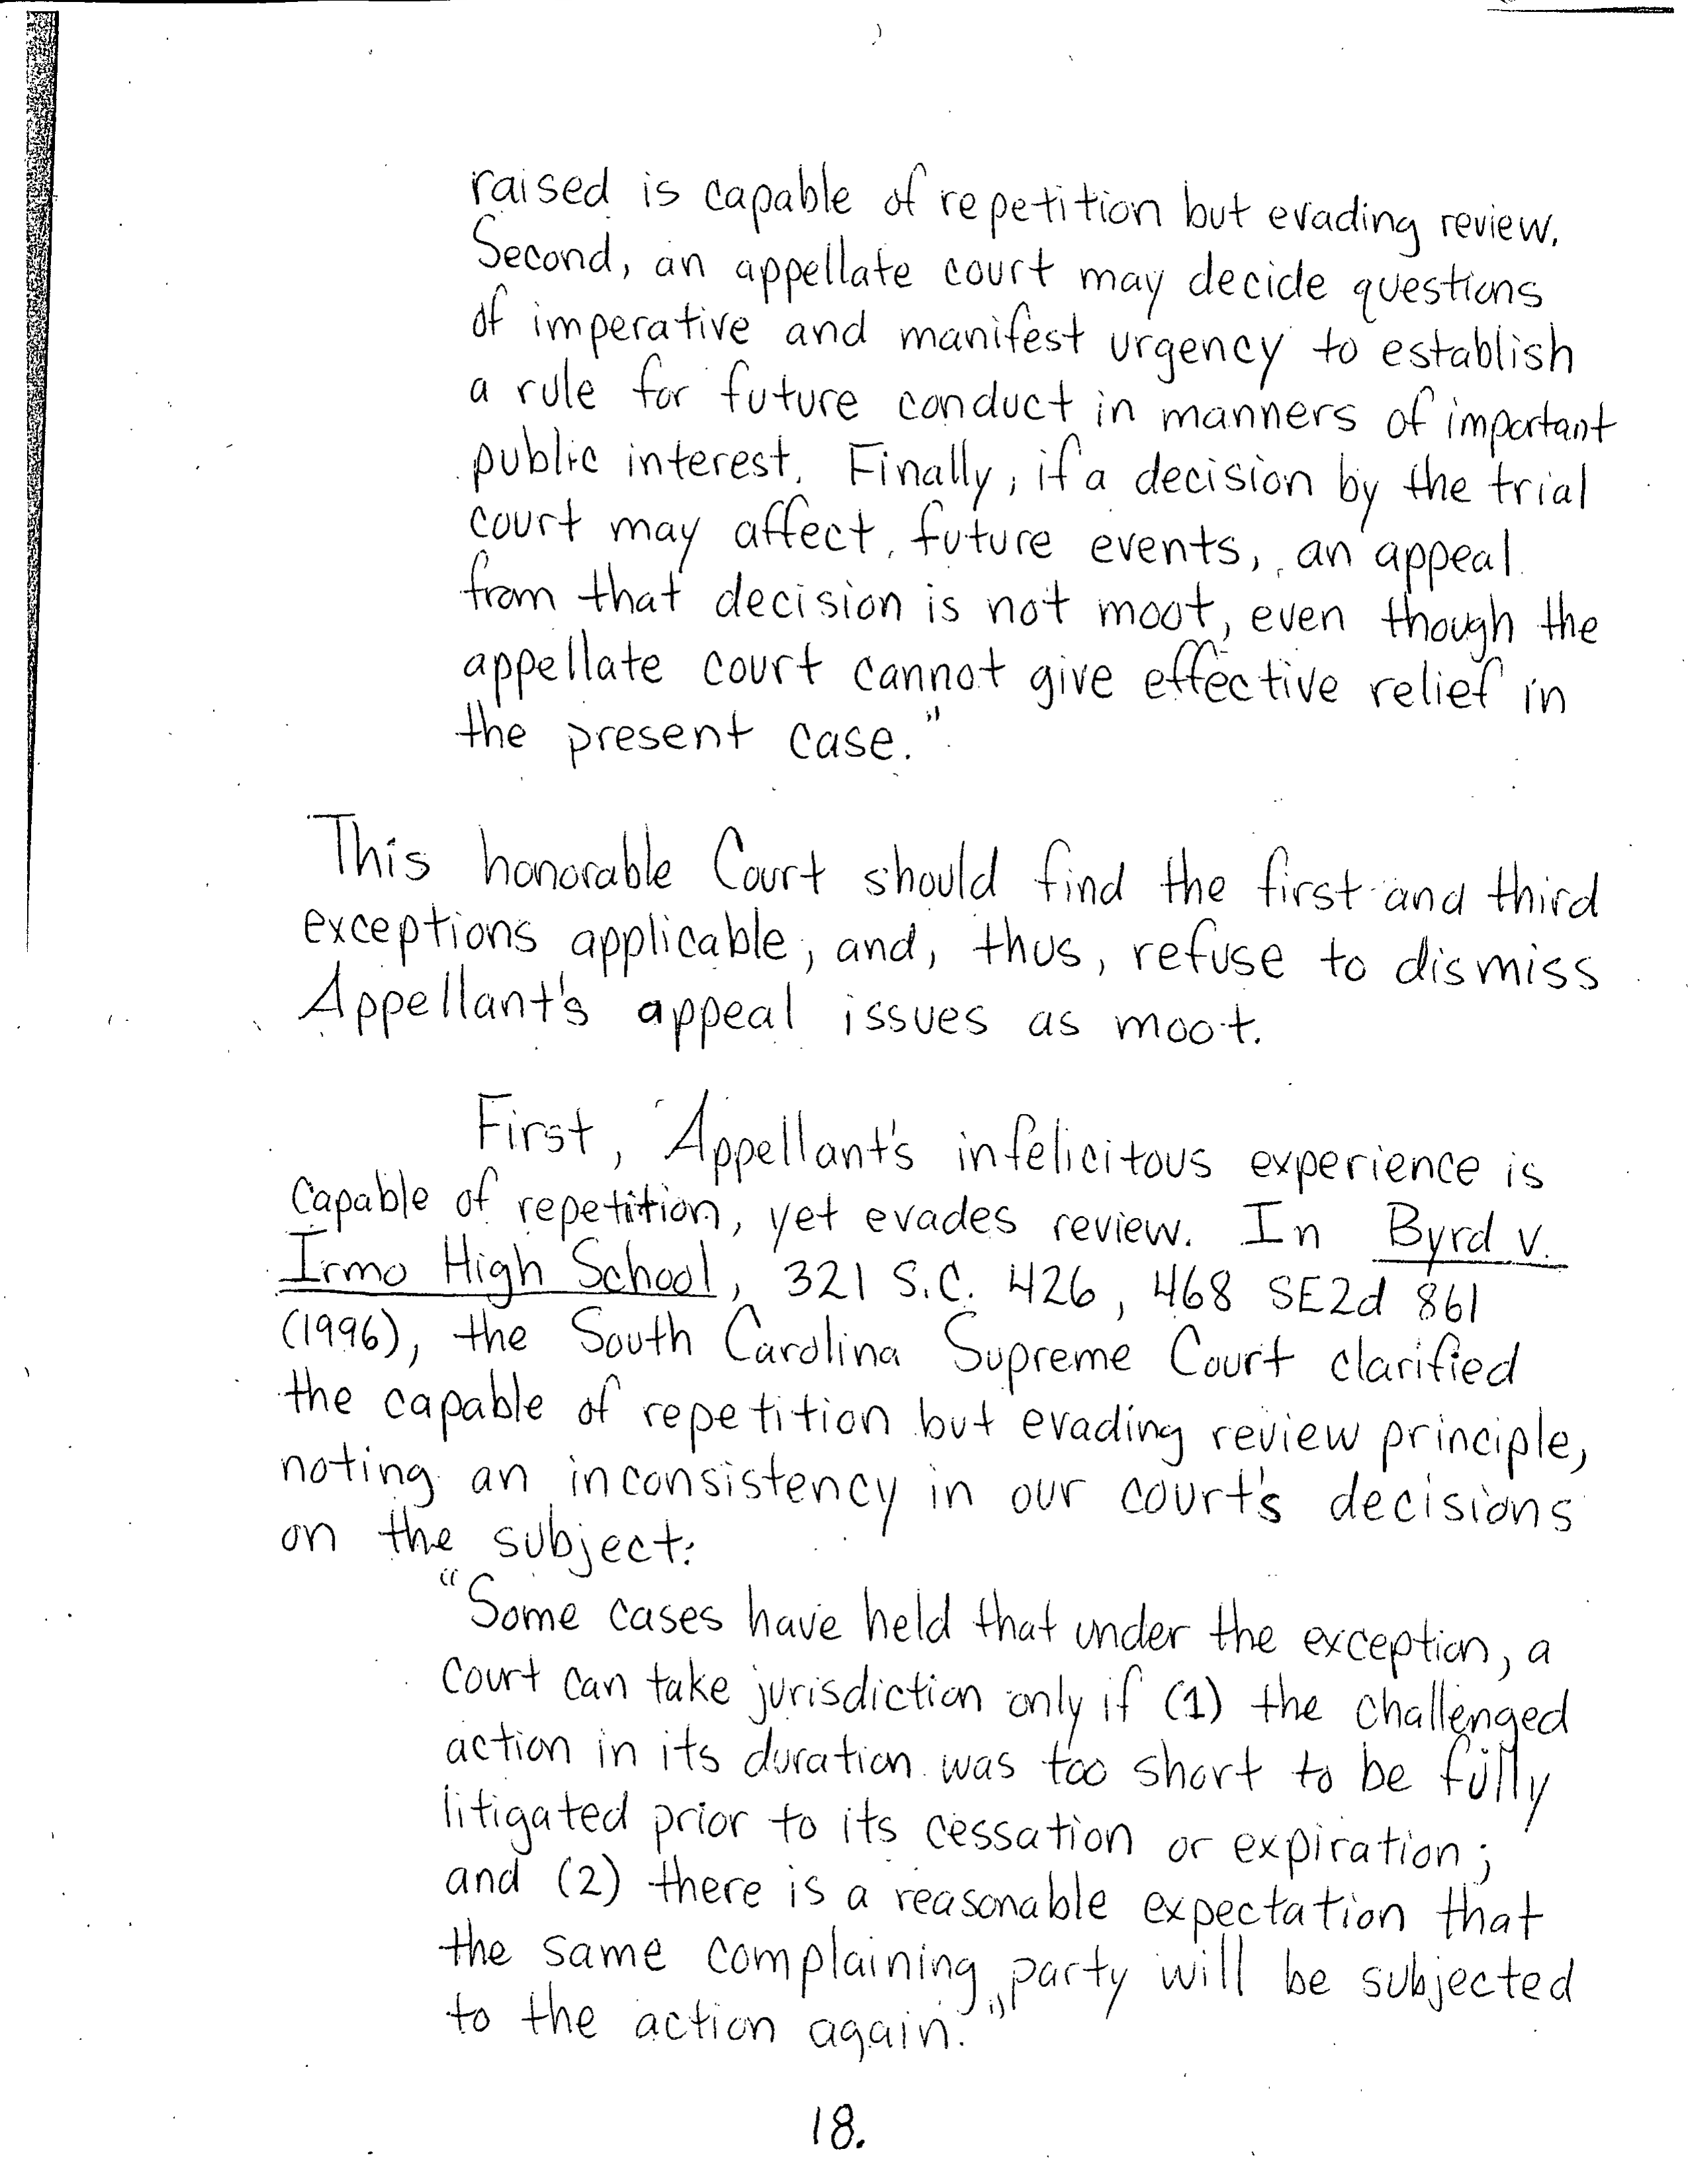 raised is capable of repetition but evading review.
Second, an appellate court may decide questions
of imperative and manifest urgency to establish
a rule for future conduct in manners of important
public interest. Finally, if a decision by the trial
court may affect future events, an appeal
from that decision is not moot, even though the
appellate court cannot give effective relief in
the present case."
This honorable Court should find the first and third
exceptions applicable, and, thus, refuse to dismiss
Appellant's appeal issues as moot.
First, Appellant's infelicitous experience is
capable of repetition, yet evades review. In Byrd v.
Irmo High School, 321 S.C. 426, 468 SE2d 861
(1996), the South Carolina Supreme Court clarified
the capable of repetition but evading review principle,
noting an inconsistency in our court's decisions
on the subject:
"Some cases have held that under the exception, a
court can take jurisdiction only if (1) the challenged
action in its duration was too short to be fully
litigated prior to its cessation or expiration;
and (2) there is a reasonable expectation that
the same complaining party will be subjected
to the action again."
18.